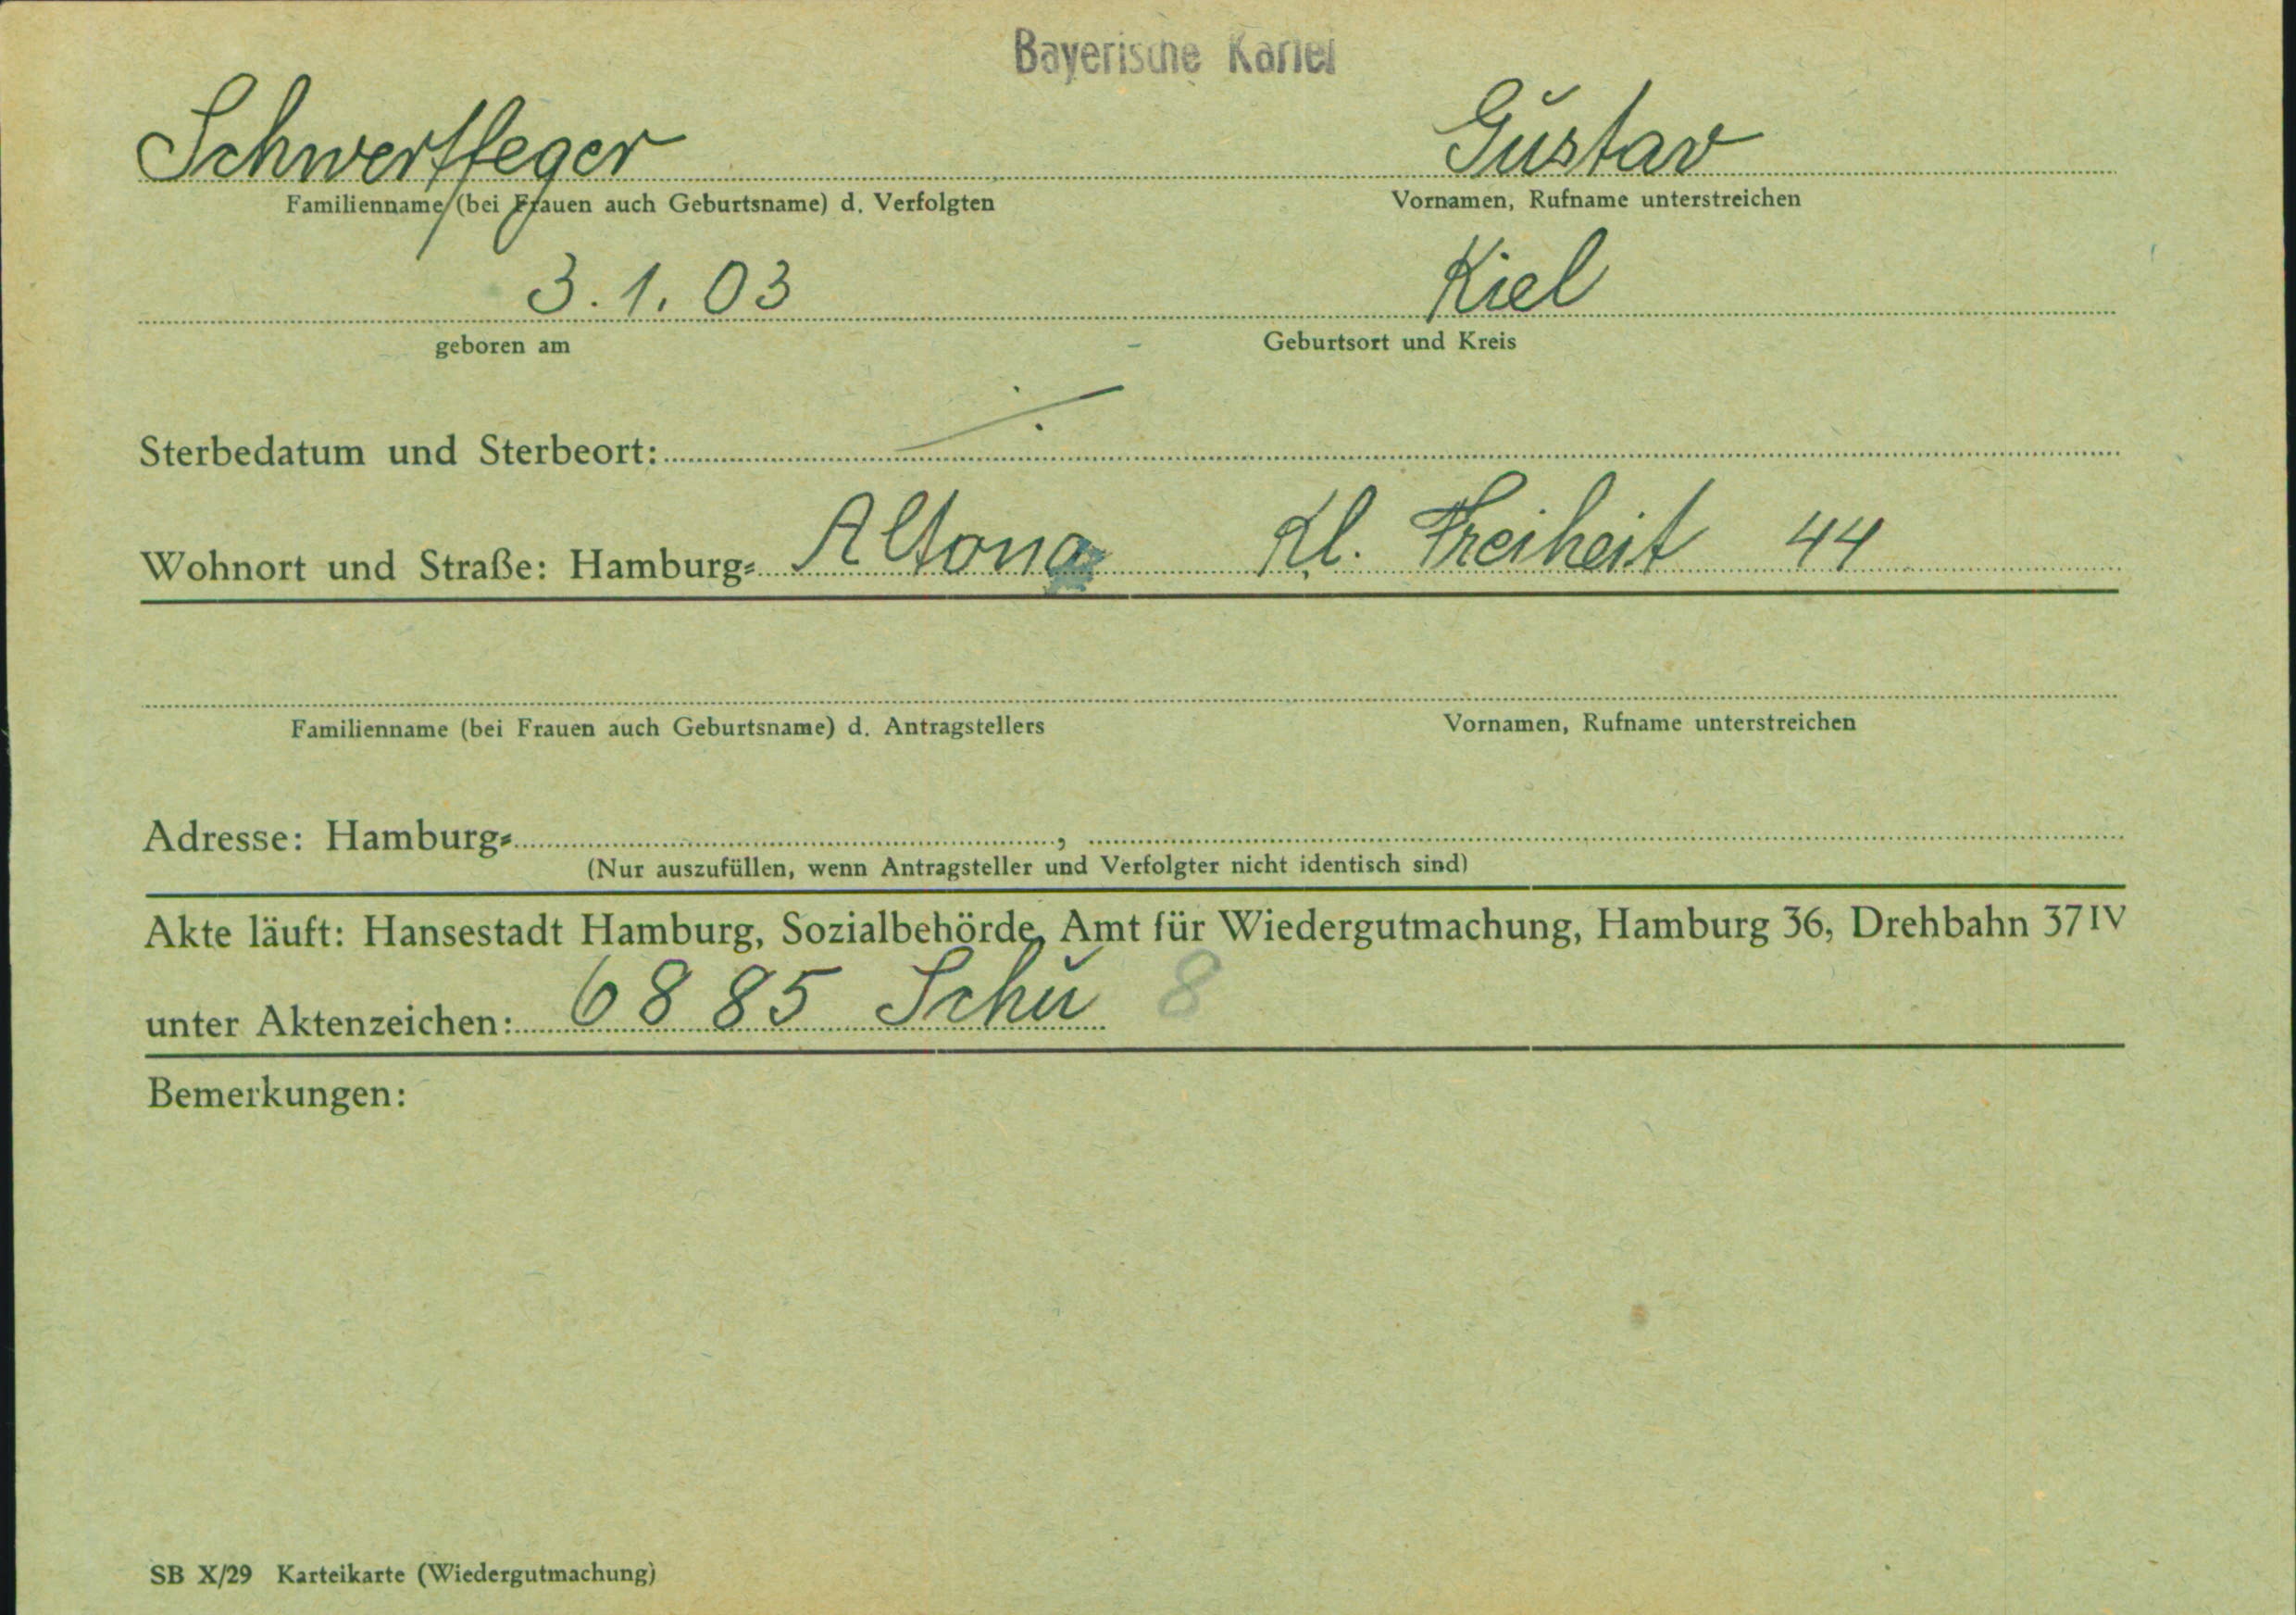 Bayerische Kartei
Schwertfeger Gustav
Familienname (bei Frauen auch Geburtsname) d. Verfolgten Vornamen, Rufname unterstreichen
3.1.03 Kiel
geboren am Geburtsort und Kreis
Sterbedatum und Sterbeort:
Wohnort und Straße: Hamburg- Altona Kl. Freiheit 44
Familienname (bei Frauen auch Geburtsname) d. Antragstellers Vornamen, Rufname unterstreichen
Adresse: Hamburg- ,
(Nur auszufüllen, wenn Antragsteller und Verfolgter nicht identisch sind)
Akte läuft: Hansestadt Hamburg, Sozialbehörde, Amt für Wiedergutmachung, Hamburg 36, Drehbahn 37 IV
unter Aktenzeichen: 6885 Schu 8
Bemerkungen:
SB X/29 Karteikarte (Wiedergutmachung)